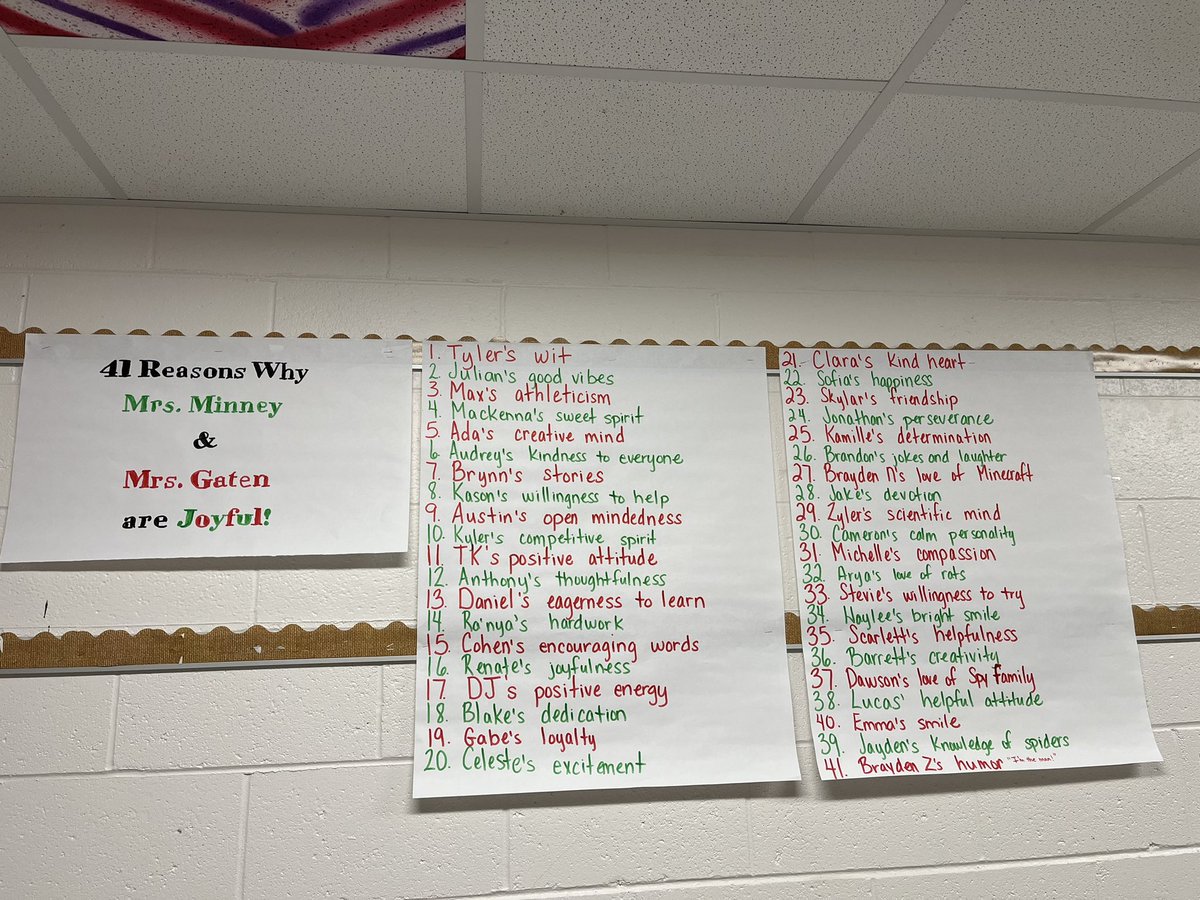 41 Reasons Why
Mrs. Minney
&
Mrs. Gaten
are Joyful!
1. Tyler's wit
2. Julian's good vibes
3. Max's athleticism
4. Mackenna's sweet spirit
5. Ada's creative mind
6. Audrey's kindness to everyone
7. Brynn's Stories
8. Kason's willingness to help
9. Austin's open mindedness
10. Kyler's competitive spirit
11. TK's positive attitude
12. Anthony's thoughtfulness
13. Daniel's eagerness to learn
14. Ro'nya's hardwork
15. Cohen's encouraging words
16. Renate's joyfulness
17. DJ's positive energy
18. Blake's dedication
19. Gabe's loyalty
20. Celeste's excitement
21. Clara's kind heart
22. Sofia's happiness
23. Skylar's friendship
24. Jonathan's perseverance
25. Kamille's determination
26. Brandon's jokes and laughter
27. Brayden N's love of Minecraft
28. Jake's devotion
29. Zyler's scientific mind
30. Cameron's calm personality
31. Michelle's compassion
32. Arya's love of rats
33. Stevie's willingness to try
34. Haylee's bright smile
35. Scarlett's helpfulness
36. Barrett's creativity
37. Dawson's love of Spy family
38. Lucas' helpful attitude
40. Emma's smile
39. Jayden's knowledge of spiders
41. Brayden Z's humor "I'm the man!"